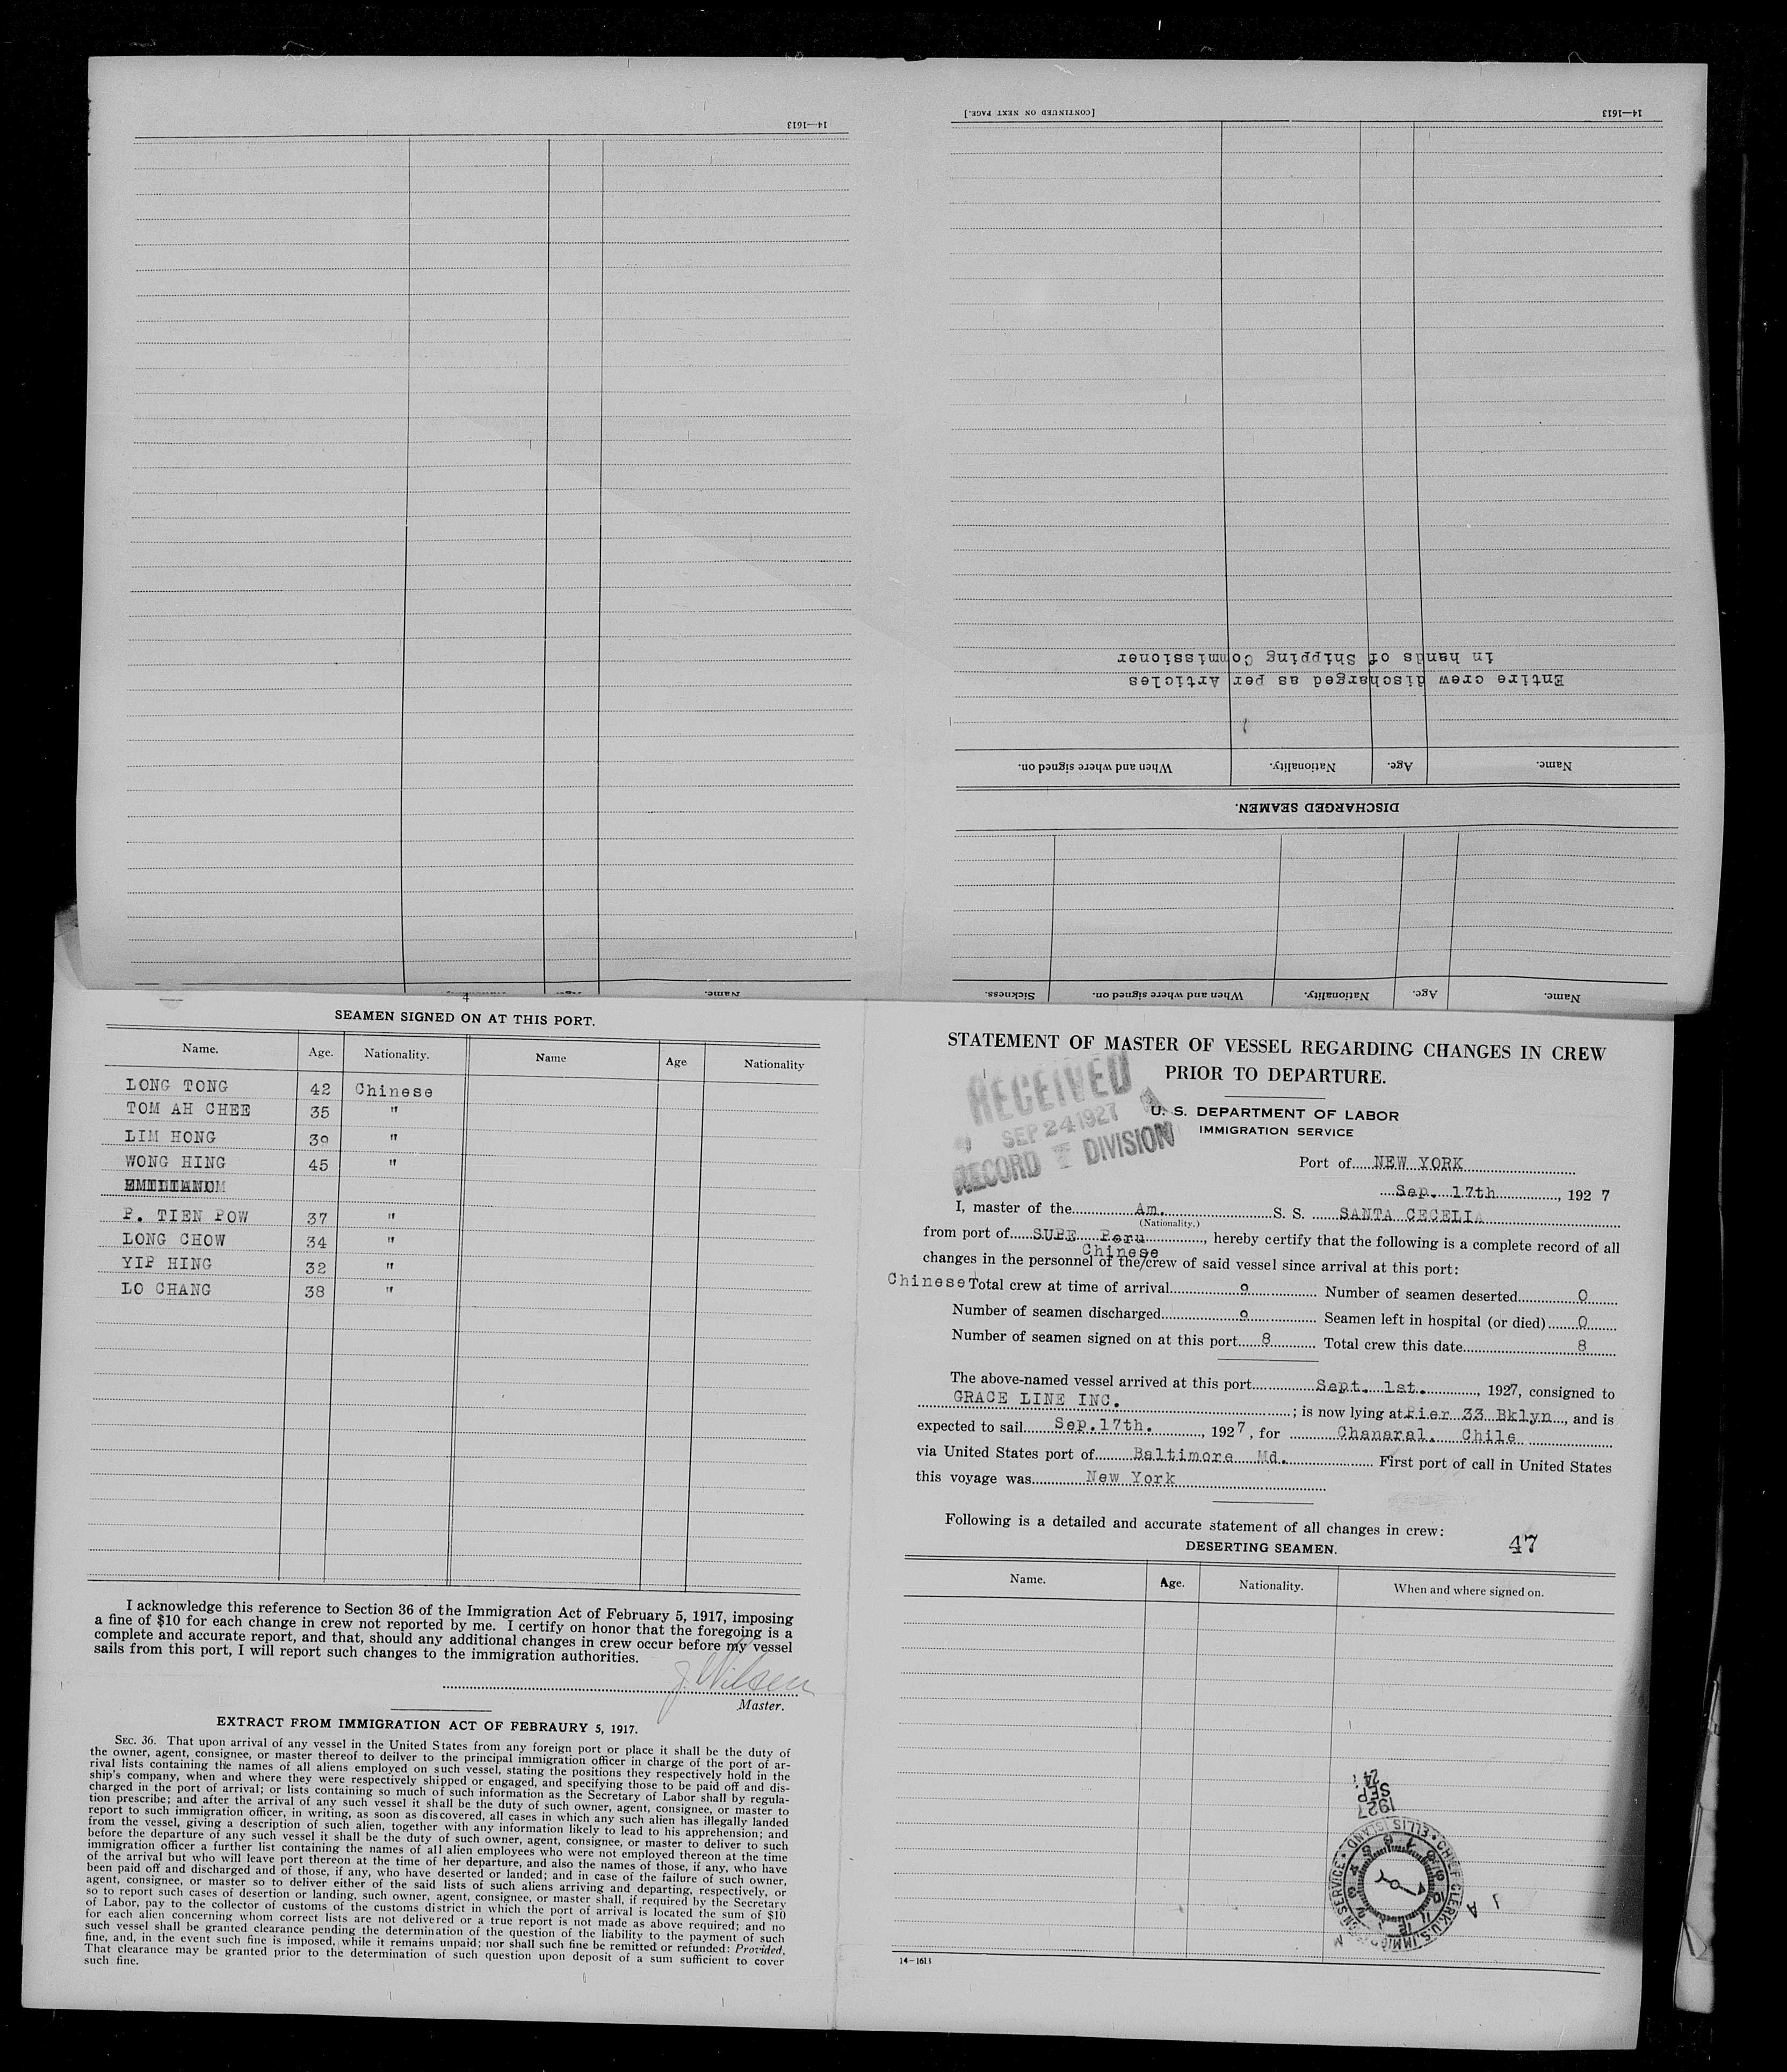 14—1613
[CONTINUED ON NEXT PAGE.]
14—1613
in hands of Shipping Commissioner
Entire crew discharged as per Articles
Name. Age. Nationality. When and where signed on.
DISCHARGED SEAMEN.
Name. Age. Nationality. When and where signed on. Sickness.
Name.
4
SEAMEN SIGNED ON AT THIS PORT.
Name. Age. Nationality. Name Age Nationality
LONG TONG 42 Chinese
TOM AH CHEE 35 "
LIM HONG 39 "
WONG HING 45 "
P. TIEN POW 37 "
LONG CHOW 34 "
YIP HING 32 "
LO CHANG 38 "
I acknowledge this reference to Section 36 of the Immigration Act of February 5, 1917, imposing
a fine of $10 for each change in crew not reported by me. I certify on honor that the foregoing is a
complete and accurate report, and that, should any additional changes in crew occur before my vessel
sails from this port, I will report such changes to the immigration authorities.
J Nilsen
Master.
EXTRACT FROM IMMIGRATION ACT OF FEBRAURY 5, 1917.
SEC. 36. That upon arrival of any vessel in the United States from any foreign port or place it shall be the duty of
the owner, agent, consignee, or master thereof to deilver to the principal immigration officer in charge of the port of ar-
rival lists containing the names of all aliens employed on such vessel, stating the positions they respectively hold in the
ship's company, when and where they were respectively shipped or engaged, and specifying those to be paid off and dis-
charged in the port of arrival; or lists containing so much of such information as the Secretary of Labor shall by regula-
tion prescribe; and after the arrival of any such vessel it shall be the duty of such owner, agent, consignee, or master to
report to such immigration officer, in writing, as soon as discovered, all cases in which any such alien has illegally landed
from the vessel, giving a description of such alien, together with any information likely to lead to his apprehension; and
before the departure of any such vessel it shall be the duty of such owner, agent, consignee, or master to deliver to such
immigration officer a further list containing the names of all alien employees who were not employed thereon at the time
of the arrival but who will leave port thereon at the time of her departure, and also the names of those, if any, who have
been paid off and discharged and of those, if any, who have deserted or landed; and in case of the failure of such owner,
agent, consignee, or master so to deliver either of the said lists of such aliens arriving and departing, respectively, or
so to report such cases of desertion or landing, such owner, agent, consignee, or master shall, if required by the Secretary
of Labor, pay to the collector of customs of the customs district in which the port of arrival is located the sum of $10
for each alien concerning whom correct lists are not delivered or a true report is not made as above required; and no
such vessel shall be granted clearance pending the determination of the question of the liability to the payment of such
fine, and, in the event such fine is imposed, while it remains unpaid; nor shall such fine be remitted or refunded: Provided,
That clearance may be granted prior to the determination of such question upon deposit of a sum sufficient to cover
such fine.
STATEMENT OF MASTER OF VESSEL REGARDING CHANGES IN CREW
PRIOR TO DEPARTURE.
RECEIVED
SEP 24 1927
RECORD DIVISION
U. S. DEPARTMENT OF LABOR
IMMIGRATION SERVICE
Port of NEW YORK
Sep. 17th, 1927
I, master of the Am. S. S. SANTA CECELIA
(Nationality.)
from port of SUPE Peru, hereby certify that the following is a complete record of all
Chinese
changes in the personnel of the/crew of said vessel since arrival at this port:
Chinese Total crew at time of arrival 0 Number of seamen deserted 0
Number of seamen discharged 0 Seamen left in hospital (or died) 0
Number of seamen signed on at this port 8 Total crew this date 8
The above-named vessel arrived at this port Sept. 1st., 1927, consigned to
GRACE LINE INC.; is now lying at Pier 33 Bklyn, and is
expected to sail Sep.17th., 1927, for Chanaral. Chile
via United States port of Baltimore Md. First port of call in United States
this voyage was New York
Following is a detailed and accurate statement of all changes in crew:
47
DESERTING SEAMEN.
Name. Age. Nationality. When and where signed on.
1927
SEP
24
CHIEF CLERK, U.S. IMMIGRATION SERVICE • ELLIS ISLAND
14—1613